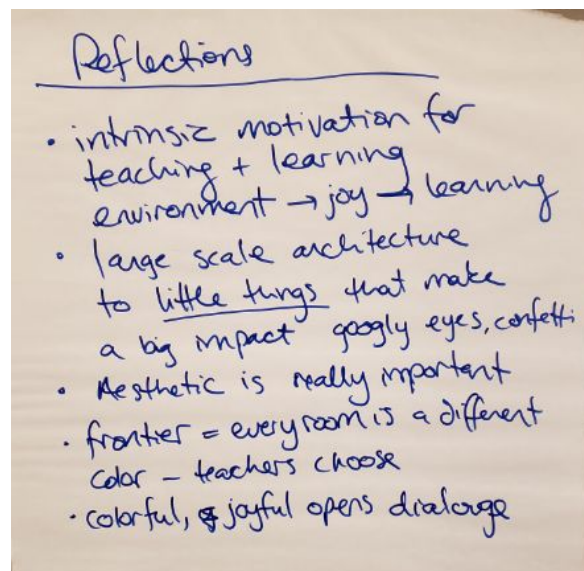 Reflections
• intrinsic motivation for
teaching + learning
environment → joy → learning
• large scale architecture
to little things that make
a big impact googly eyes, confetti
• Aesthetic is really important
• frontier = every room is a different
color – teachers choose
• colorful, joyful opens dialouge